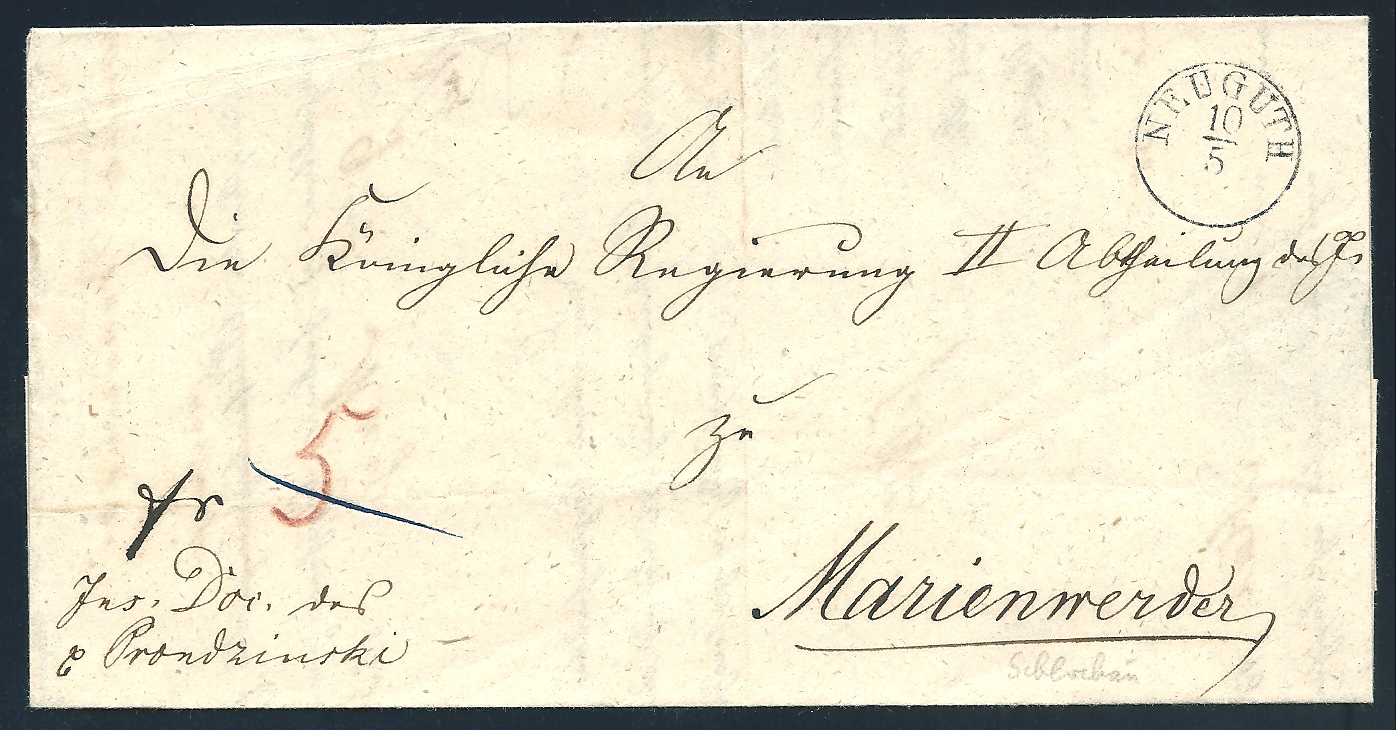 NEUGUTH
10
5
An
Die Königliche Regierung II Abtheilung des J.
zu
5
fr
Ins. Doc. des
Prondzinski
Marienwerder
Schlochau